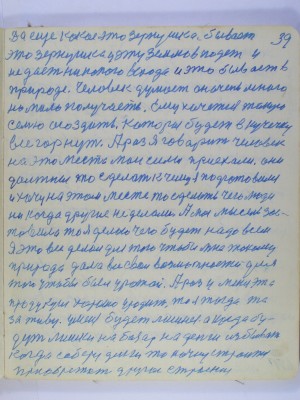 39
За еще какое это зернушка. бывает
это зернушка у эту землю в падет и
не даст никакого всхода и это бывает в
природе. Человек думает он очень много
но мало получает. Ему хочется такую
семью создать, которая будет в кучечку
все горнут. А раз я говорит человек
на это место мои семья приехали. они
должны это сделать к чему я подготовил
и хочу на этом месте то сделать чего люди
никогда другие не делали. А мои мысли зас-
тавило то я делаю чего будет надо всем
Я это все делаю для того чтобы мне человеку
природа дала все свои возможности для
того чтобы был урожай. А раз у меня эта
продукция хорошо уродит, то я тогда то
заживу. у меня будет мешка а когда бу-
дут мешки на базар на деньги
когда соберу деньги то начну строить
приобретать другое строения